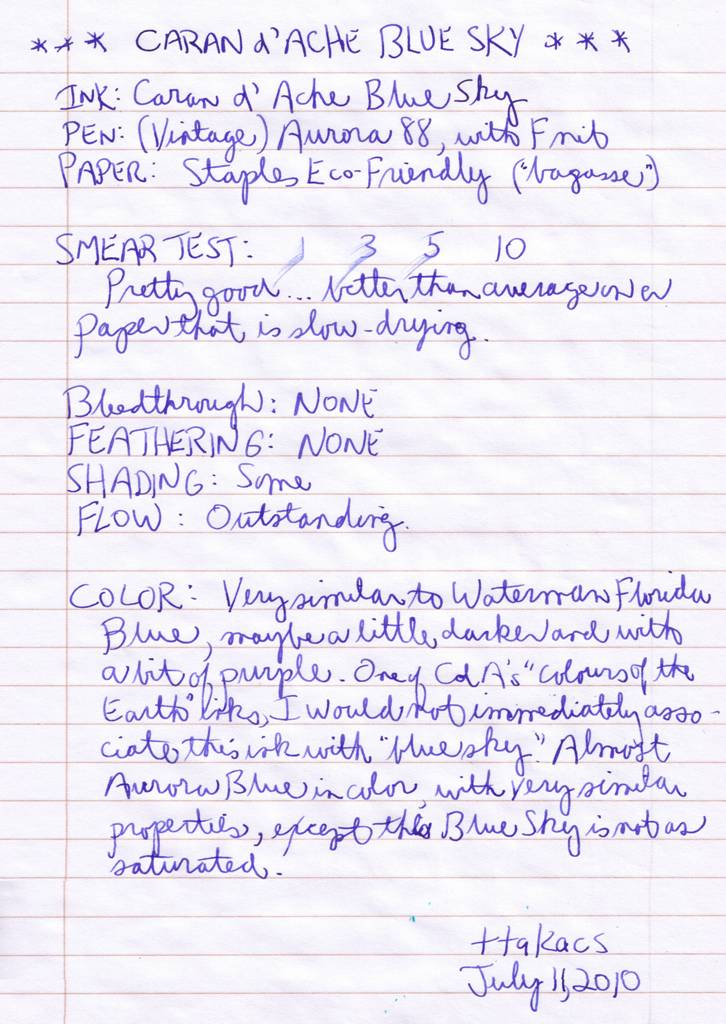 *** CARAN d'ACHE BLUE SKY ***
INK: Caran d'Ache Blue Sky
PEN: (Vintage) Aurora 88, with F nib
PAPER: Staples Eco-Friendly ("bagasse")
SMEAR TEST: 1 3 5 10
Pretty good... better than average on a
paper that is slow-drying.
Bleedthrough: NONE
FEATHERING: NONE
SHADING: Some
FLOW: Outstanding.
COLOR: Very similar to Waterman Florida
Blue, maybe a little darker and with
a bit of purple. One of CdA's "Colours of the
Earth" inks, I would not immediately asso-
ciate this ink with "blue sky." Almost
Aurora Blue in color, with very similar
properties, except this Blue Sky is not as
saturated.
ttakacs
July 11, 2010